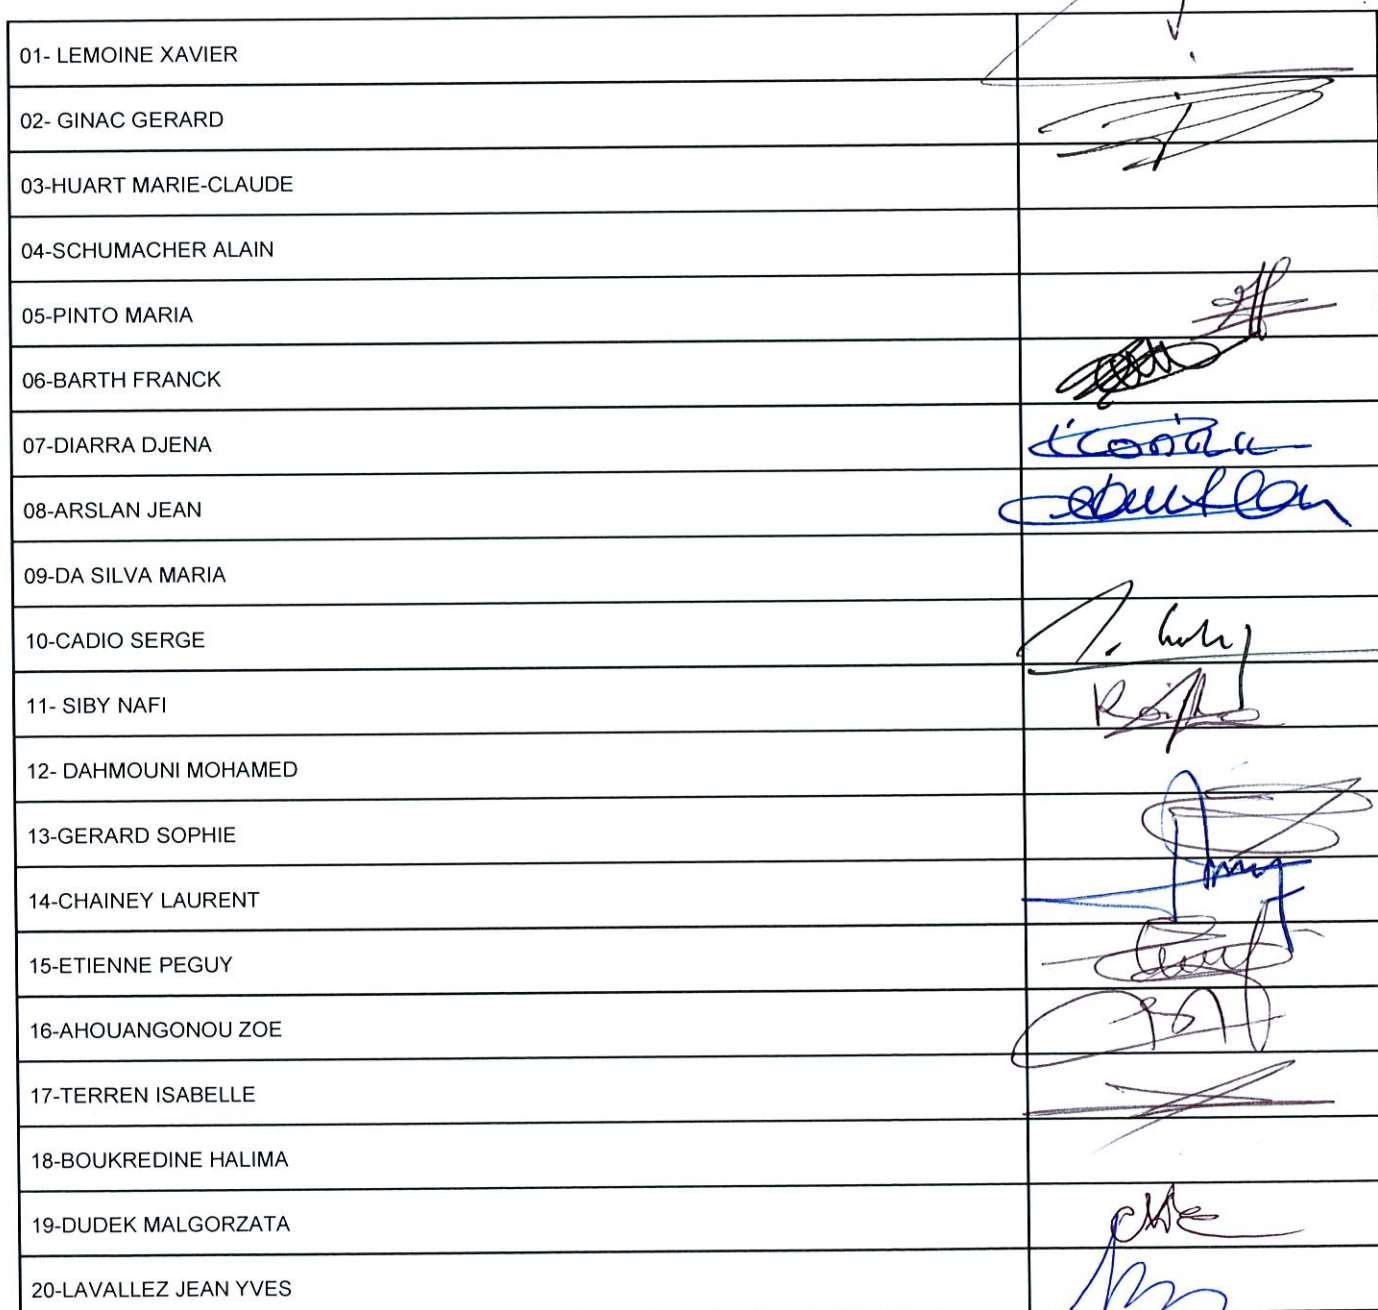 01- LEMOINE XAVIER
02- GINAC GERARD
03-HUART MARIE-CLAUDE
04-SCHUMACHER ALAIN
05-PINTO MARIA
06-BARTH FRANCK
07-DIARRA DJENA
08-ARSLAN JEAN
09-DA SILVA MARIA
10-CADIO SERGE
11- SIBY NAFI
12- DAHMOUNI MOHAMED
13-GERARD SOPHIE
14-CHAINEY LAURENT
15-ETIENNE PEGUY
16-AHOUANGONOU ZOE
17-TERREN ISABELLE
18-BOUKREDINE HALIMA
19-DUDEK MALGORZATA
20-LAVALLEZ JEAN YVES